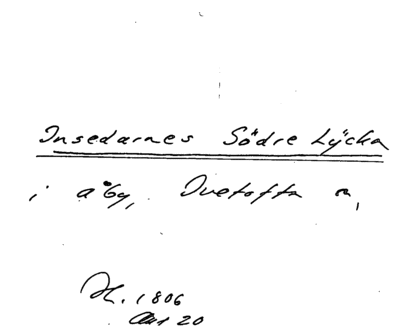 Insedarnes Södre Lycka
i åby, Ivetofta n,
H. 1806
Akt 20